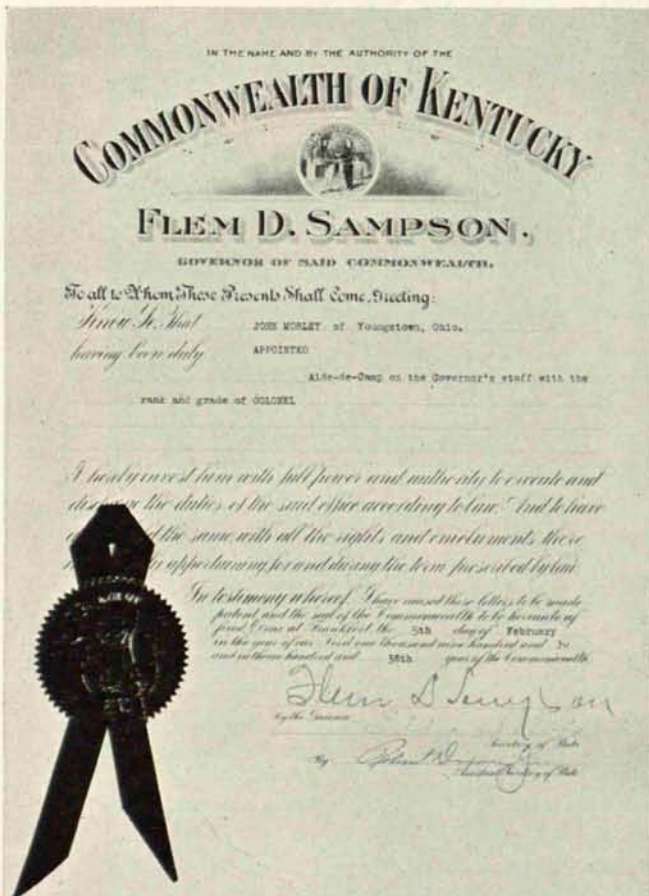 IN THE NAME AND BY THE AUTHORITY OF THE
COMMONWEALTH OF KENTUCKY
FLEM D. SAMPSON,
GOVERNOR OF SAID COMMONWEALTH.
To all to Whom These Presents Shall Come, Greeting:
Know Ye, That JOHN MORLEY of Youngstown, Ohio.
having been duly APPOINTED
Aide-de-Camp on the Governor's staff with the
rank and grade of COLONEL
I hereby invest him with full power and authority to execute and
discharge the duties of the said office according to law. And to have
the same, with all the rights and emoluments there
appertaining for and during the term prescribed by law.
In testimony whereof, I have caused these letters to be made
patent and the seal of the Commonwealth to be hereunto
Done at Frankfort the 5th day of February
in the year of our Lord one thousand nine hundred and
and in the one hundred and 38th year of the Commonwealth
Flem D Sampson
By the Governor
Secretary of State
By
Assistant Secretary of State